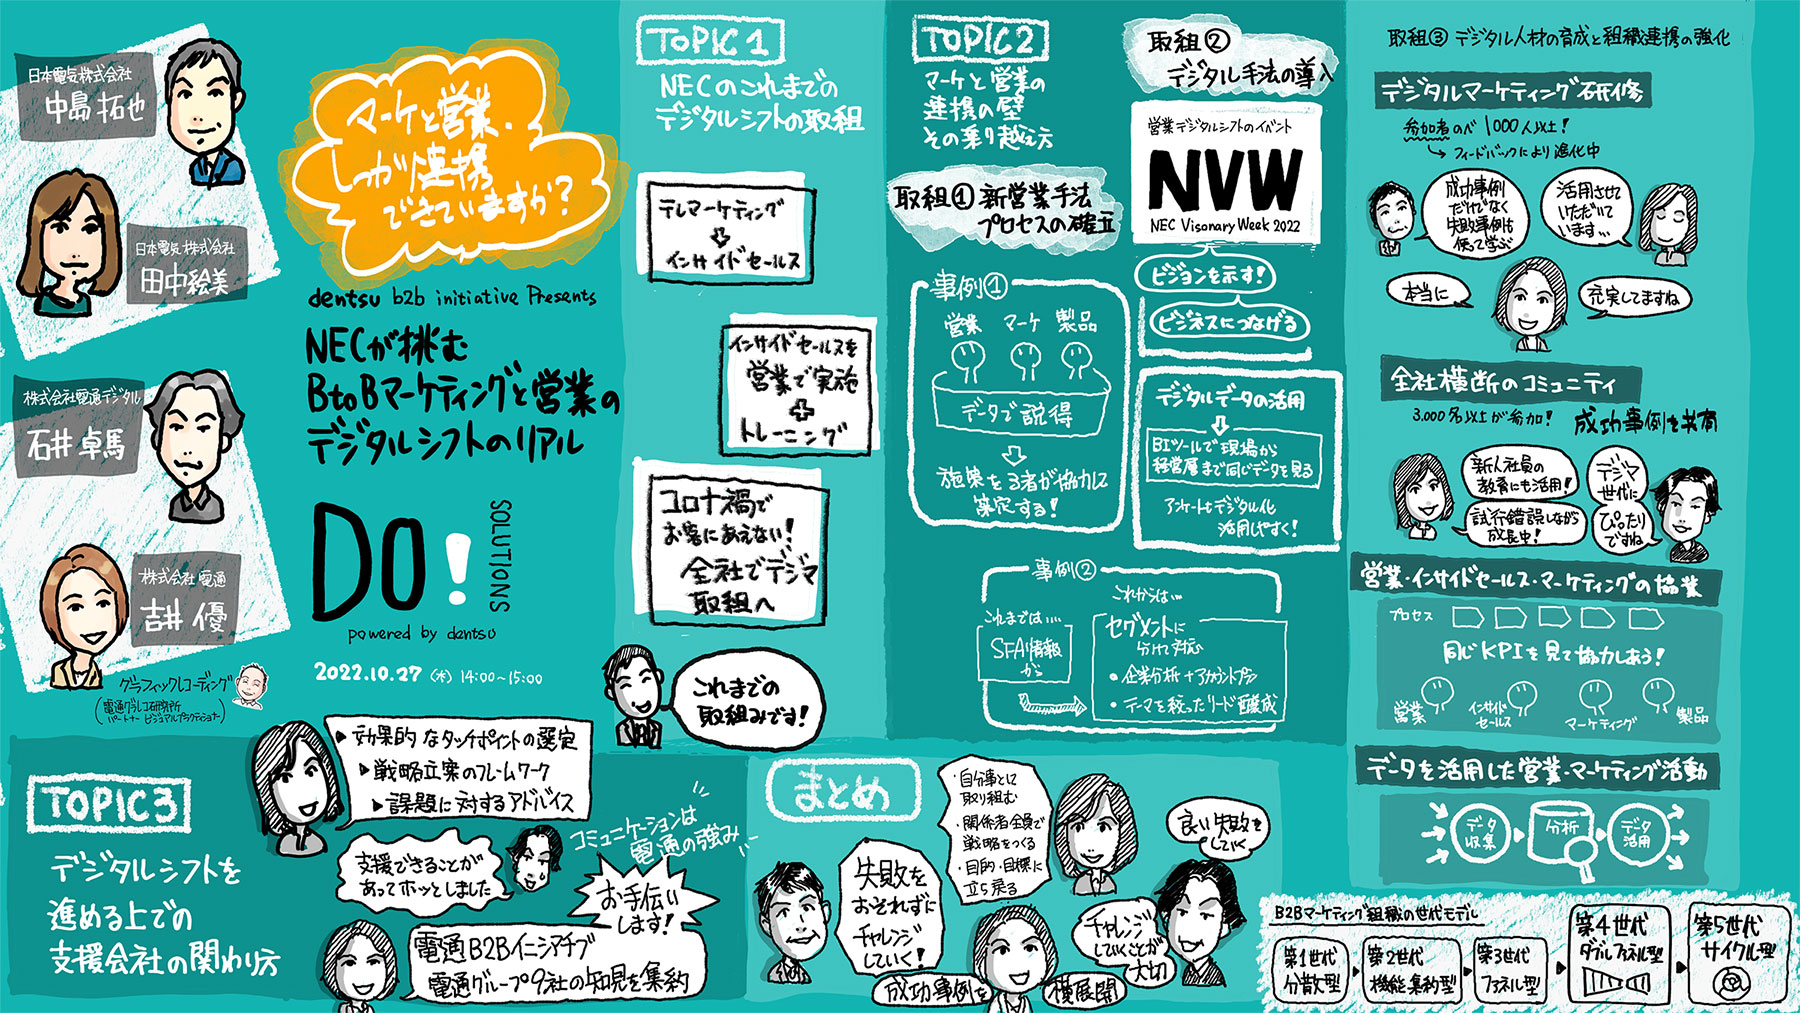 日本電気株式会社
中島 拓也
日本電気株式会社
田中絵美
株式会社電通デジタル
石井 卓馬
株式会社電通
吉井 優
グラフィックレコーディング
(電通グラレコ研究所
パートナー ビジュアルプラクティショナー)
マーケと営業、
しっかり連携
できていますか?
dentsu b2b initiative Presents
NECが挑む
BtoBマーケティングと営業の
デジタルシフトのリアル
DO!
SOLUTIONS
powered by dentsu
2022.10.27 (木) 14:00~15:00
TOPIC1
NECのこれまでの
デジタルシフトの取組
テレマーケティング
インサイドセールス
インサイドセールスを
営業で実施
トレーニング
コロナ禍で
お客にあえない!
全社でデジマ
取組へ
これまでの
取組みです!
TOPIC2
マーケと営業の
連携の壁
その乗り越え方
取組① 新営業手法
プロセスの確立
事例①
営業 マーケ 製品
データで説得
施策を3者が協力して
策定する!
取組②
デジタル手法の導入
営業デジタルシフトのイベント
NVW
NEC Visonary Week 2022
ビジョンを示す!
ビジネスにつなげる
デジタルデータの活用
BIツールで現場から
経営層まで同じデータを見る
アンケートもデジタル化
活用しやすく!
事例②
これまでは....
SFA情報
が
これからは...
セグメントに
分けて対応
・企業分析+アカウントプラン
・テーマを絞ったリード醸成
取組③ デジタル人材の育成と組織連携の強化
デジタルマーケティング研修
参加者のべ1000人以上!
フィードバックにより進化中
成功事例
だけでなく
失敗事例も
使って学ぶ
活用させて
いただいて
います...
本当に
充実してますね
全社横断のコミュニティ
3,000名以上が参加! 成功事例を共有
新人社員の
教育にも活用!
試行錯誤しながら
成長中!
デジマ
世代に
ぴったり
ですね
営業・インサイドセールス・マーケティングの協業
プロセス
同じKPIを見て協力しあう!
営業
インサイド
セールス
マーケティング
製品
データを活用した営業・マーケティング活動
データ
収集
分析
データ
活用
TOPIC3
デジタルシフトを
進める上での
支援会社の関わり方
▶効果的なタッチポイントの選定
▶戦略立案のフレームワーク
▶課題に対するアドバイス
支援できることが
あってホッとしました
コミュニケーションは
電通の強み
お手伝い
します!
電通B2Bイニシアチブ
電通グループ9社の知見を集約
まとめ
・自分事として
取り組む
・関係者全員で
戦略をつくる
・目的・目標に
立ち戻る
失敗を
おそれずに
チャレンジ
していく!
良い失敗を
していく
チャレンジ
していくことが
大切
成功事例を
横展開
B2Bマーケティング組織の世代モデル
第1世代
分散型
第2世代
機能集約型
第3世代
ファネル型
第4世代
ダブルファネル型
第5世代
サイクル型